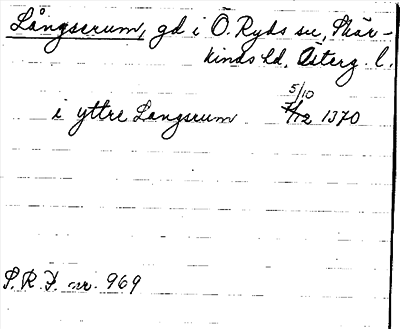 Långserum, gd i Ö. Ryds sn, Skär-
kinds hd, Österg. l.
5/10
i yttre Langserum 1370
S.R.P. nr. 969